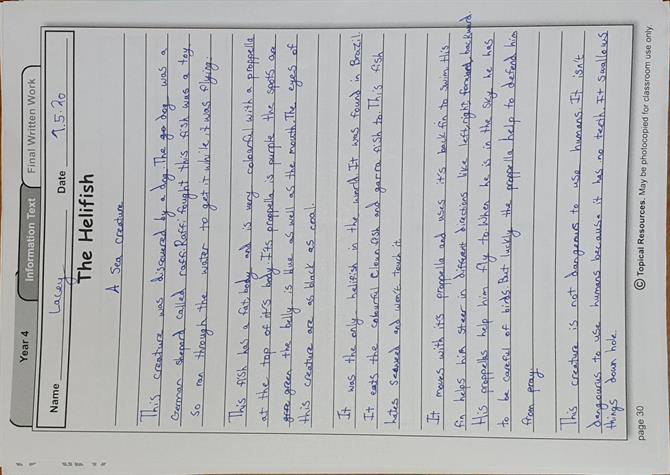 Year 4
Information Text
Final Written Work
Name Lacey
Date 7.5.20
The Helifish
A Sea creature
This creature was discoured by a dog. The go dog was a
German shepard called raff. Raff fought this fish was a toy.
So ran through the water to get it while it was flying.
This fish has a fat body and is very colourful with a propella
at the top of it's body. It's propella is purple the spots are
green the belly is blue as well as the mouth. The eyes of
this creature are as black as coal.
It was the only helifish in the world. It was found in Brazil.
It eats the colourful clean fish and garra fish to. This fish
hates seaweed and won't touch it.
It moves with it's propella and uses it's back fin to swim. His
fin helps him steer in different directions like left, right, forward, backward.
His propellas help him fly to. When he is in the sky he has
to be careful of birds. But luckly the propella help to defend him
from pray.
This creature is not dangourus to use humans. It isn't
dangourus to use humans because it has no teeth. It swallows
things down hole.
page 30
© Topical Resources. May be photocopied for classroom use only.